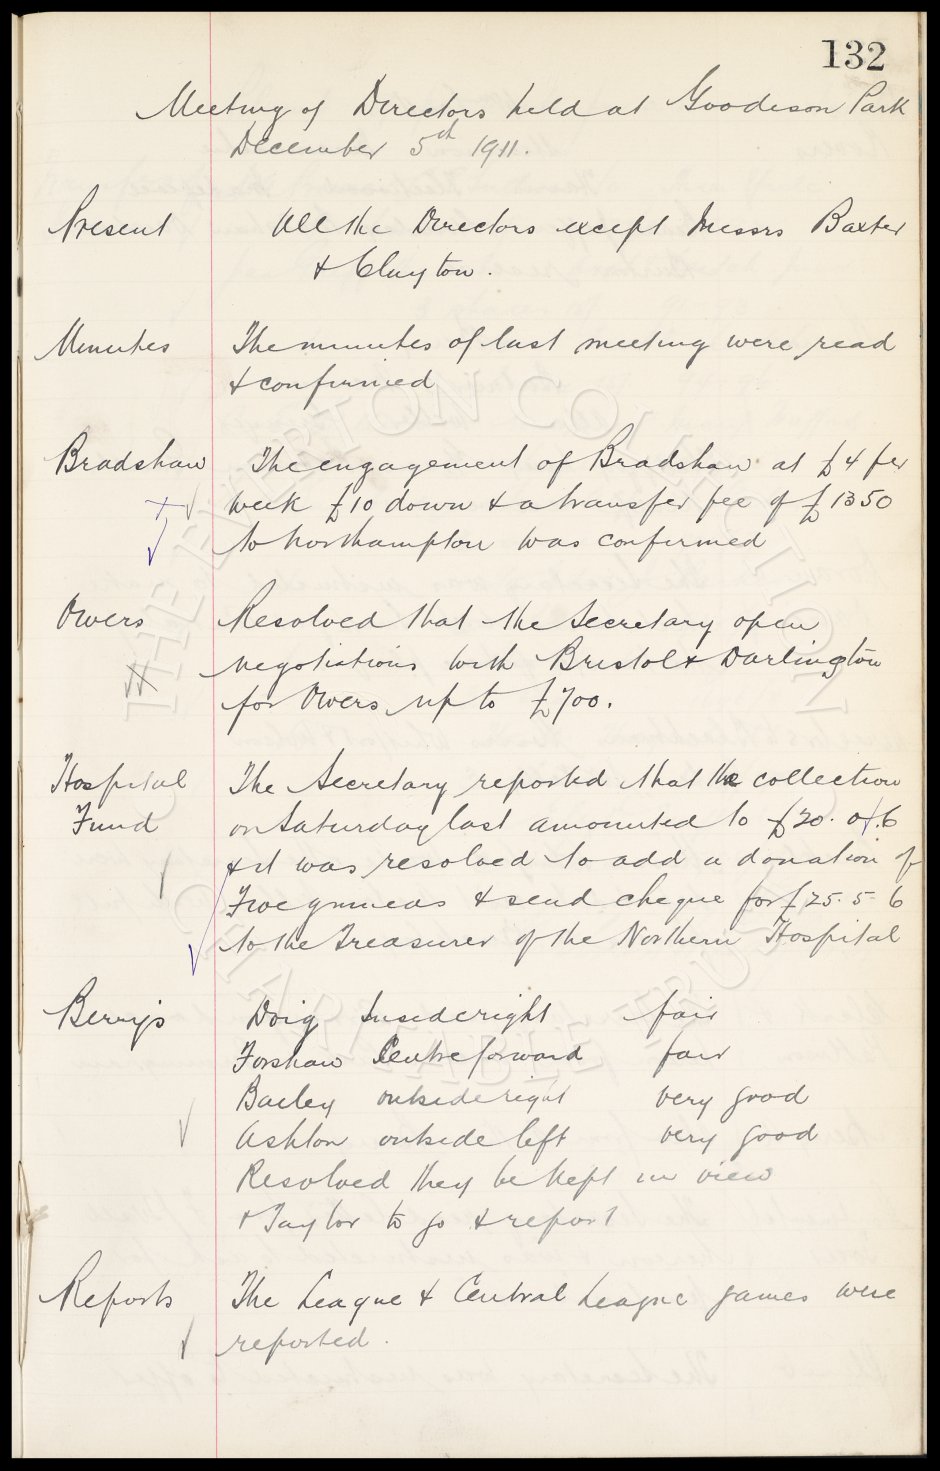 132
Meeting of Directors held at Goodison Park
December 5th 1911.
Present All the Directors except Messrs Baxter
& Clayton.
Minutes The minutes of last meeting were read
& confirmed
Bradshaw The engagement of Bradshaw at £4 per
week £10 down & a transfer fee of £1350
to Northampton was confirmed
Owers Resolved that the Secretary open
negotiations with Bristol & Darlington
for Owers up to £700.
Hospital The Secretary reported that the collection
Fund on Saturday last amounted to £20. 0. 6
& it was resolved to add a donation of
Five guineas & send cheque for £25. 5. 6
to the Treasurer of the Northern Hospital
Berry's Doig Inside right fair
Forshaw Centre forward fair
Bailey outside right very good
Ashton outside left very good
Resolved they be kept in view
& Taylor to go & report
Reports The League & Central League games were
reported.
THE EVERTON COLLECTION
CHARITABLE TRUST